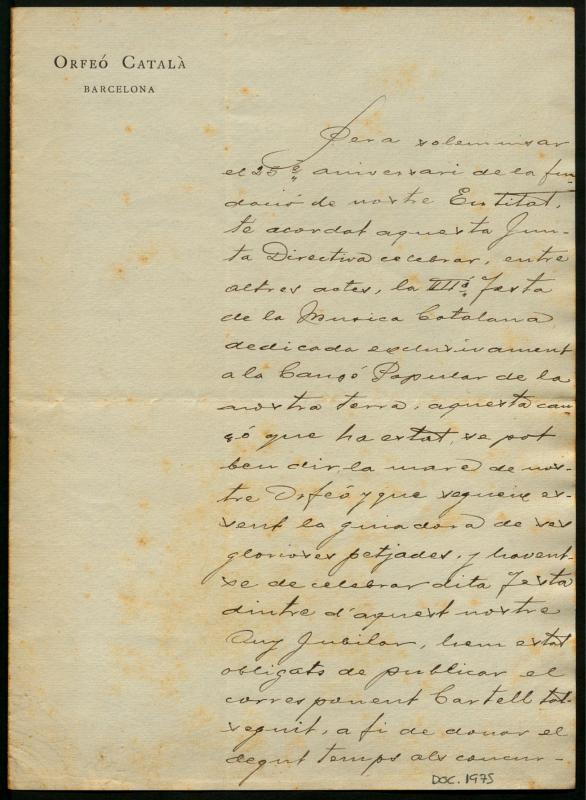 ORFEÓ CATALÀ
BARCELONA
Pera solemnisar
el 25è aniversari de la fun-
dació de nostre Entitat,
té acordat aquesta Jun-
ta Directiva celebrar, entre
altres actes, la Festa
de la Musica Catalana
dedicada exclusivament
a la Cançó Popular de la
nostra terra, aquesta can-
çó que ha estat, se pot
ben dir, la mare de nos-
tre Orfeó y que segueix es-
sent la guiadora de ses
glorioses petjades, y havent-
se de celebrar dita Festa
dintre d'aquest nostre
Any Jubilar, hem estat
obligats de publicar el
corresponent Cartell tot
seguit, a fi de donar el
degut temps als concur-
DOC. 1975